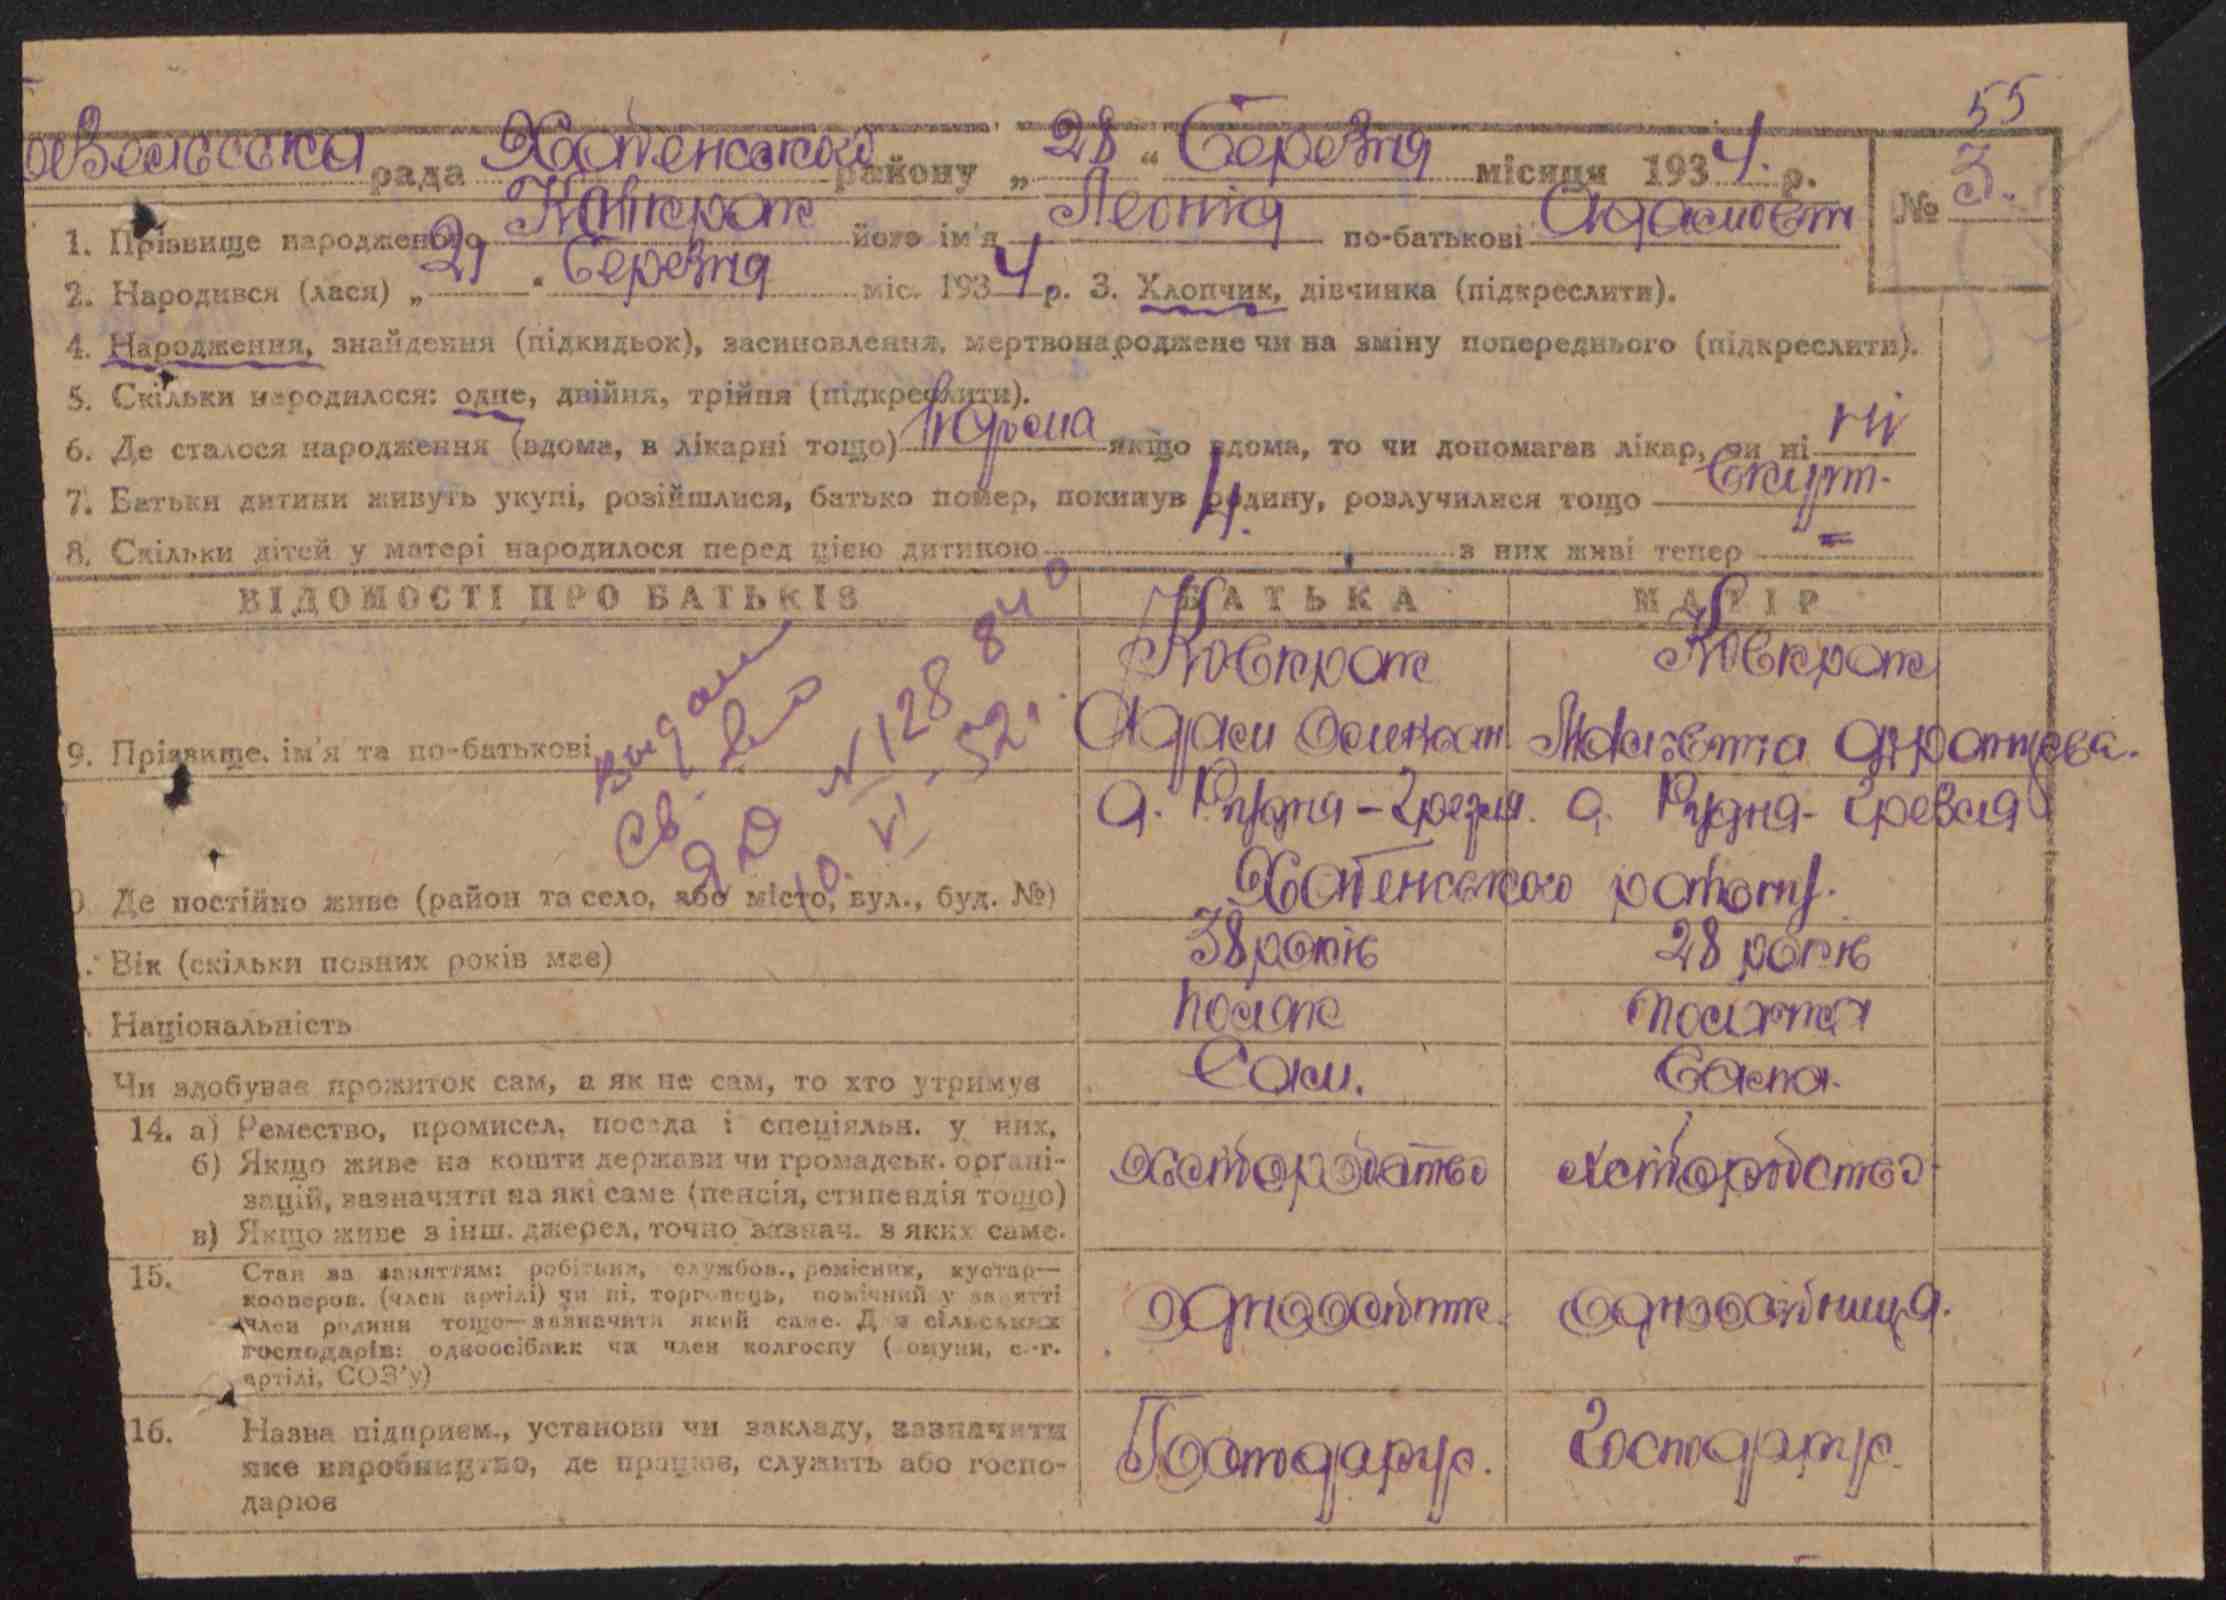 55
рада Хабенського району „ 28 “ Березня місяця 1934. р.
№ 3.
1. Прізвище народженого Ковкрак його ім'я Леонід по-батькові Адамовіч
2. Народився (лася) „ 21 “ Березня міс. 1934 р. 3. Хлопчик, дівчинка (підкреслити).
4. Народження, знайдення (підкидьок), засиновлення, мертвонароджене чи на зміну попереднього (підкреслити).
5. Скільки народилося: одне, двійня, трійня (підкреслити).
6. Де сталося народження (вдома, в лікарні тощо) вдома якщо вдома, то чи допомагав лікар, чи ні ні
7. Батьки дитини живуть укупі, розійшлися, батько помер, покинув родину, розлучилися тощо Вкупі.
8. Скільки дітей у матері народилося перед цією дитиною 4. з них живі тепер =
ВІДОМОСТІ ПРО БАТЬКІВ БАТЬКА МАТІР
Ковкрак Ковкрак
9. Прізвище, ім'я та по-батькові Адам
Выдан
Св-во
ЯЮ № 128840
10. VI-52.
с. Рудня-Грезля. с. Рудня-Грезля
Де постійно живе (район та село, або місто, вул., буд. №) Хабенського району.
Вік (скільки повних років має) 38 років 28 років
Національність поляк полячка
Чи здобуває прожиток сам, а як не сам, то хто утримує Сам. Сама.
14. а) Ремество, промисел, посада і спеціяльн. у них,
б) Якщо живе на кошти держави чи громадськ. органі- хліборобство хліборобство
зацій, зазначити на які саме (пенсія, стипендія тощо)
в) Якщо живе з інш. джерел, точно зазнач. з яких саме.
15. Стан за заняттям: робітник, службов., ремісник, кустар—
кооперов. (член артілі) чи ні, торговець, помічний у занятті
член родини тощо—зазначити який саме. Для сільських одноосібник. одноосібниця.
господарів: одноосібник чи член колгоспу (комуни, с.-г.
артілі, СОЗ'у)
16. Назва підприєм., установи чи закладу, зазначити
яке виробництво, де працює, служить або госпо- Господарює. Господарює.
дарює